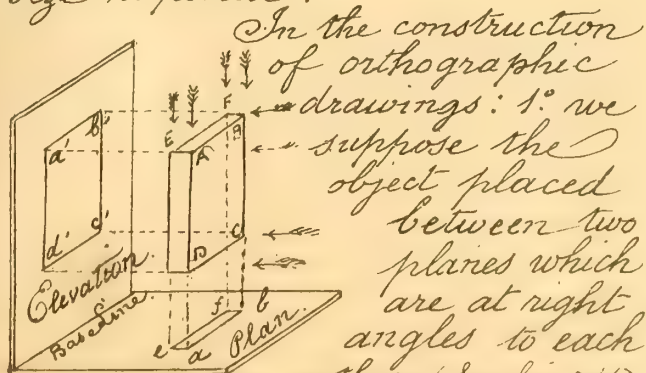 In the construction
of orthographic
drawings: 1º we
suppose the
object placed
between two
planes which
are at right
angles to each
E
F
A
B
C
D
a'
b'
c'
d'
Elevation.
Baseline
e
a
f
b
Plan.